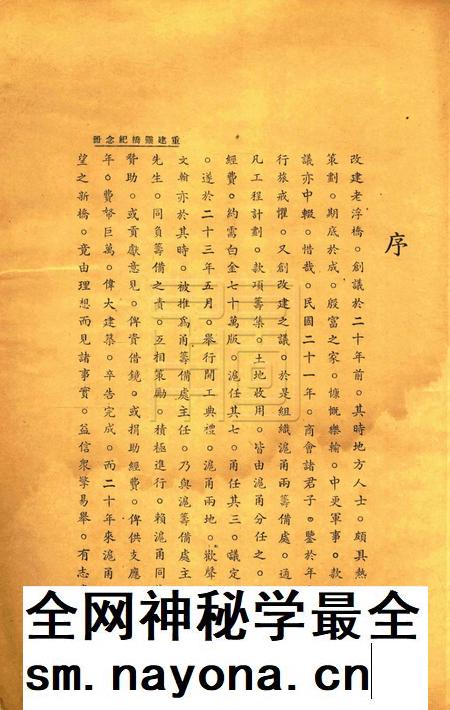 重建靈橋紀念冊
序
改建老浮橋。創議於二十年前。其時地方人士。頗具熱
策劃。期底於成。殷富之家。慷慨樂輸。中更軍事。款
議亦中輟。惜哉。民國二十一年。商會諸君子。鑒於年
行旅戒懼。又創改建之議。於是組織滬甬兩籌備處。通
凡工程計劃。款項籌集。土地收用。皆由滬甬分任之。
經費。約需白金七十萬版。滬任其七。甬任其三。議定
。遂於二十三年五月。舉行開工典禮。滬甬兩地。歡聲
文翰亦於其時。被推爲甬籌備處主任。乃與滬籌備處主
先生。同負籌備之責。互相策勵。積極進行。賴滬甬同
贊助。或貢獻意見。俾資借鏡。或捐助經費。俾供支應
年。費幣巨萬。偉大建築。卒告完成。而二十年來滬甬
望之新橋。竟由理想而見諸事實。益信衆擎易舉。有志
全网神秘学最全
sm.nayona.cn